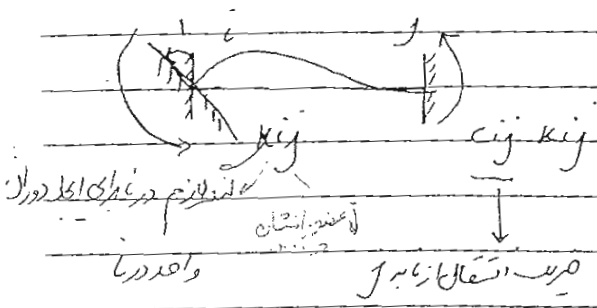 1 i j
Kij Cij Kij
لنگر لازم در i برای ایجاد دوران
واحد در i
ضریب انتقال از i به j